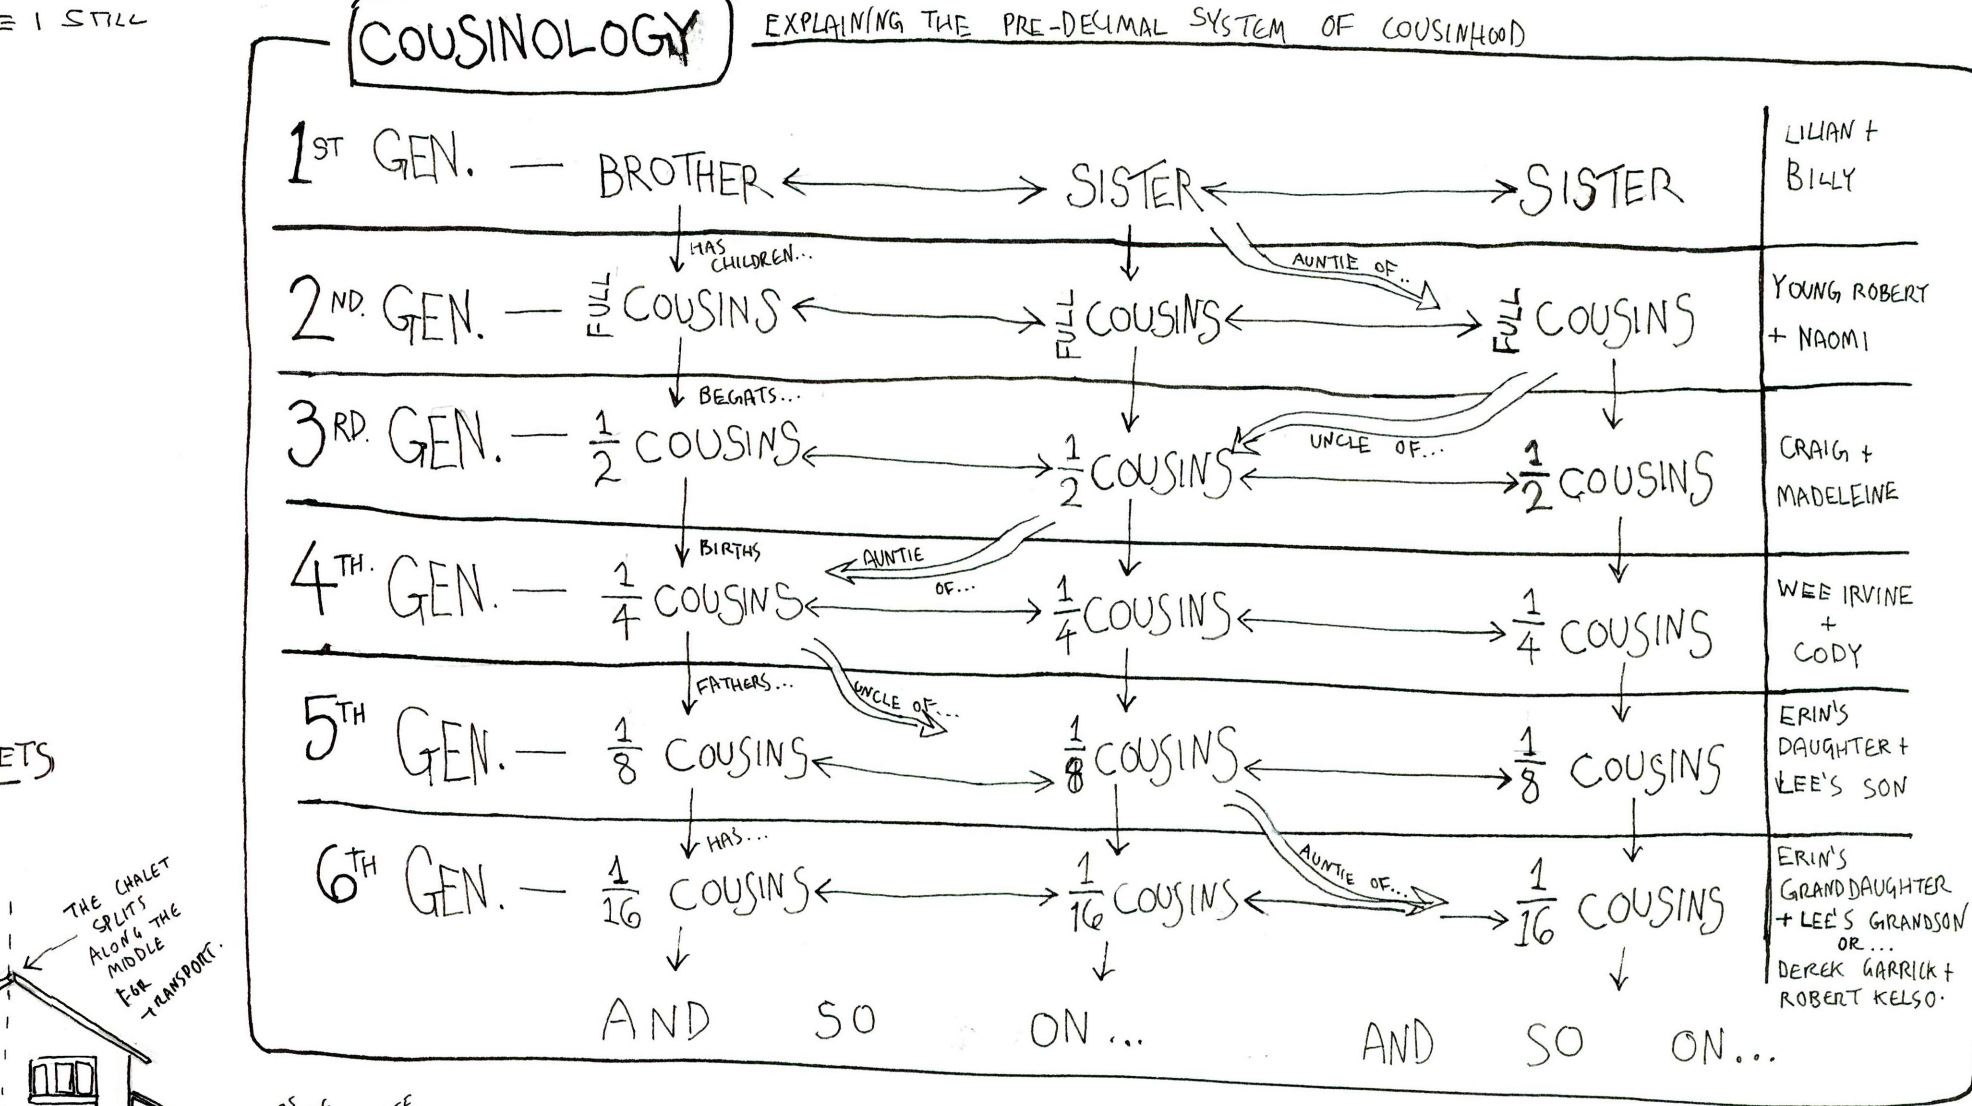 E I STILL
COUSINOLOGY
EXPLAINING THE PRE-DECIMAL SYSTEM OF COUSINHOOD
1ST GEN. — BROTHER SISTER SISTER
LILIAN +
BILLY
HAS
CHILDREN...
AUNTIE OF...
2ND. GEN. — FULL COUSINS FULL COUSINS FULL COUSINS
YOUNG ROBERT
+ NAOMI
BEGATS...
UNCLE OF...
3RD. GEN. — 1/2 COUSINS 1/2 COUSINS 1/2 COUSINS
CRAIG +
MADELEINE
BIRTHS
AUNTIE
OF...
4TH. GEN. — 1/4 COUSINS 1/4 COUSINS 1/4 COUSINS
WEE IRVINE
+
CODY
FATHERS...
UNCLE OF...
5TH GEN. — 1/8 COUSINS 1/8 COUSINS 1/8 COUSINS
ERIN'S
DAUGHTER +
LEE'S SON
HAS...
AUNTIE OF...
6TH GEN. — 1/16 COUSINS 1/16 COUSINS 1/16 COUSINS
ERIN'S
GRANDDAUGHTER
+ LEE'S GRANDSON
OR...
DEREK GARRICK +
ROBERT KELSO.
AND SO ON... AND SO ON...
ETS
THE CHALET
SPLITS
ALONG THE
MIDDLE
FOR
TRANSPORT.